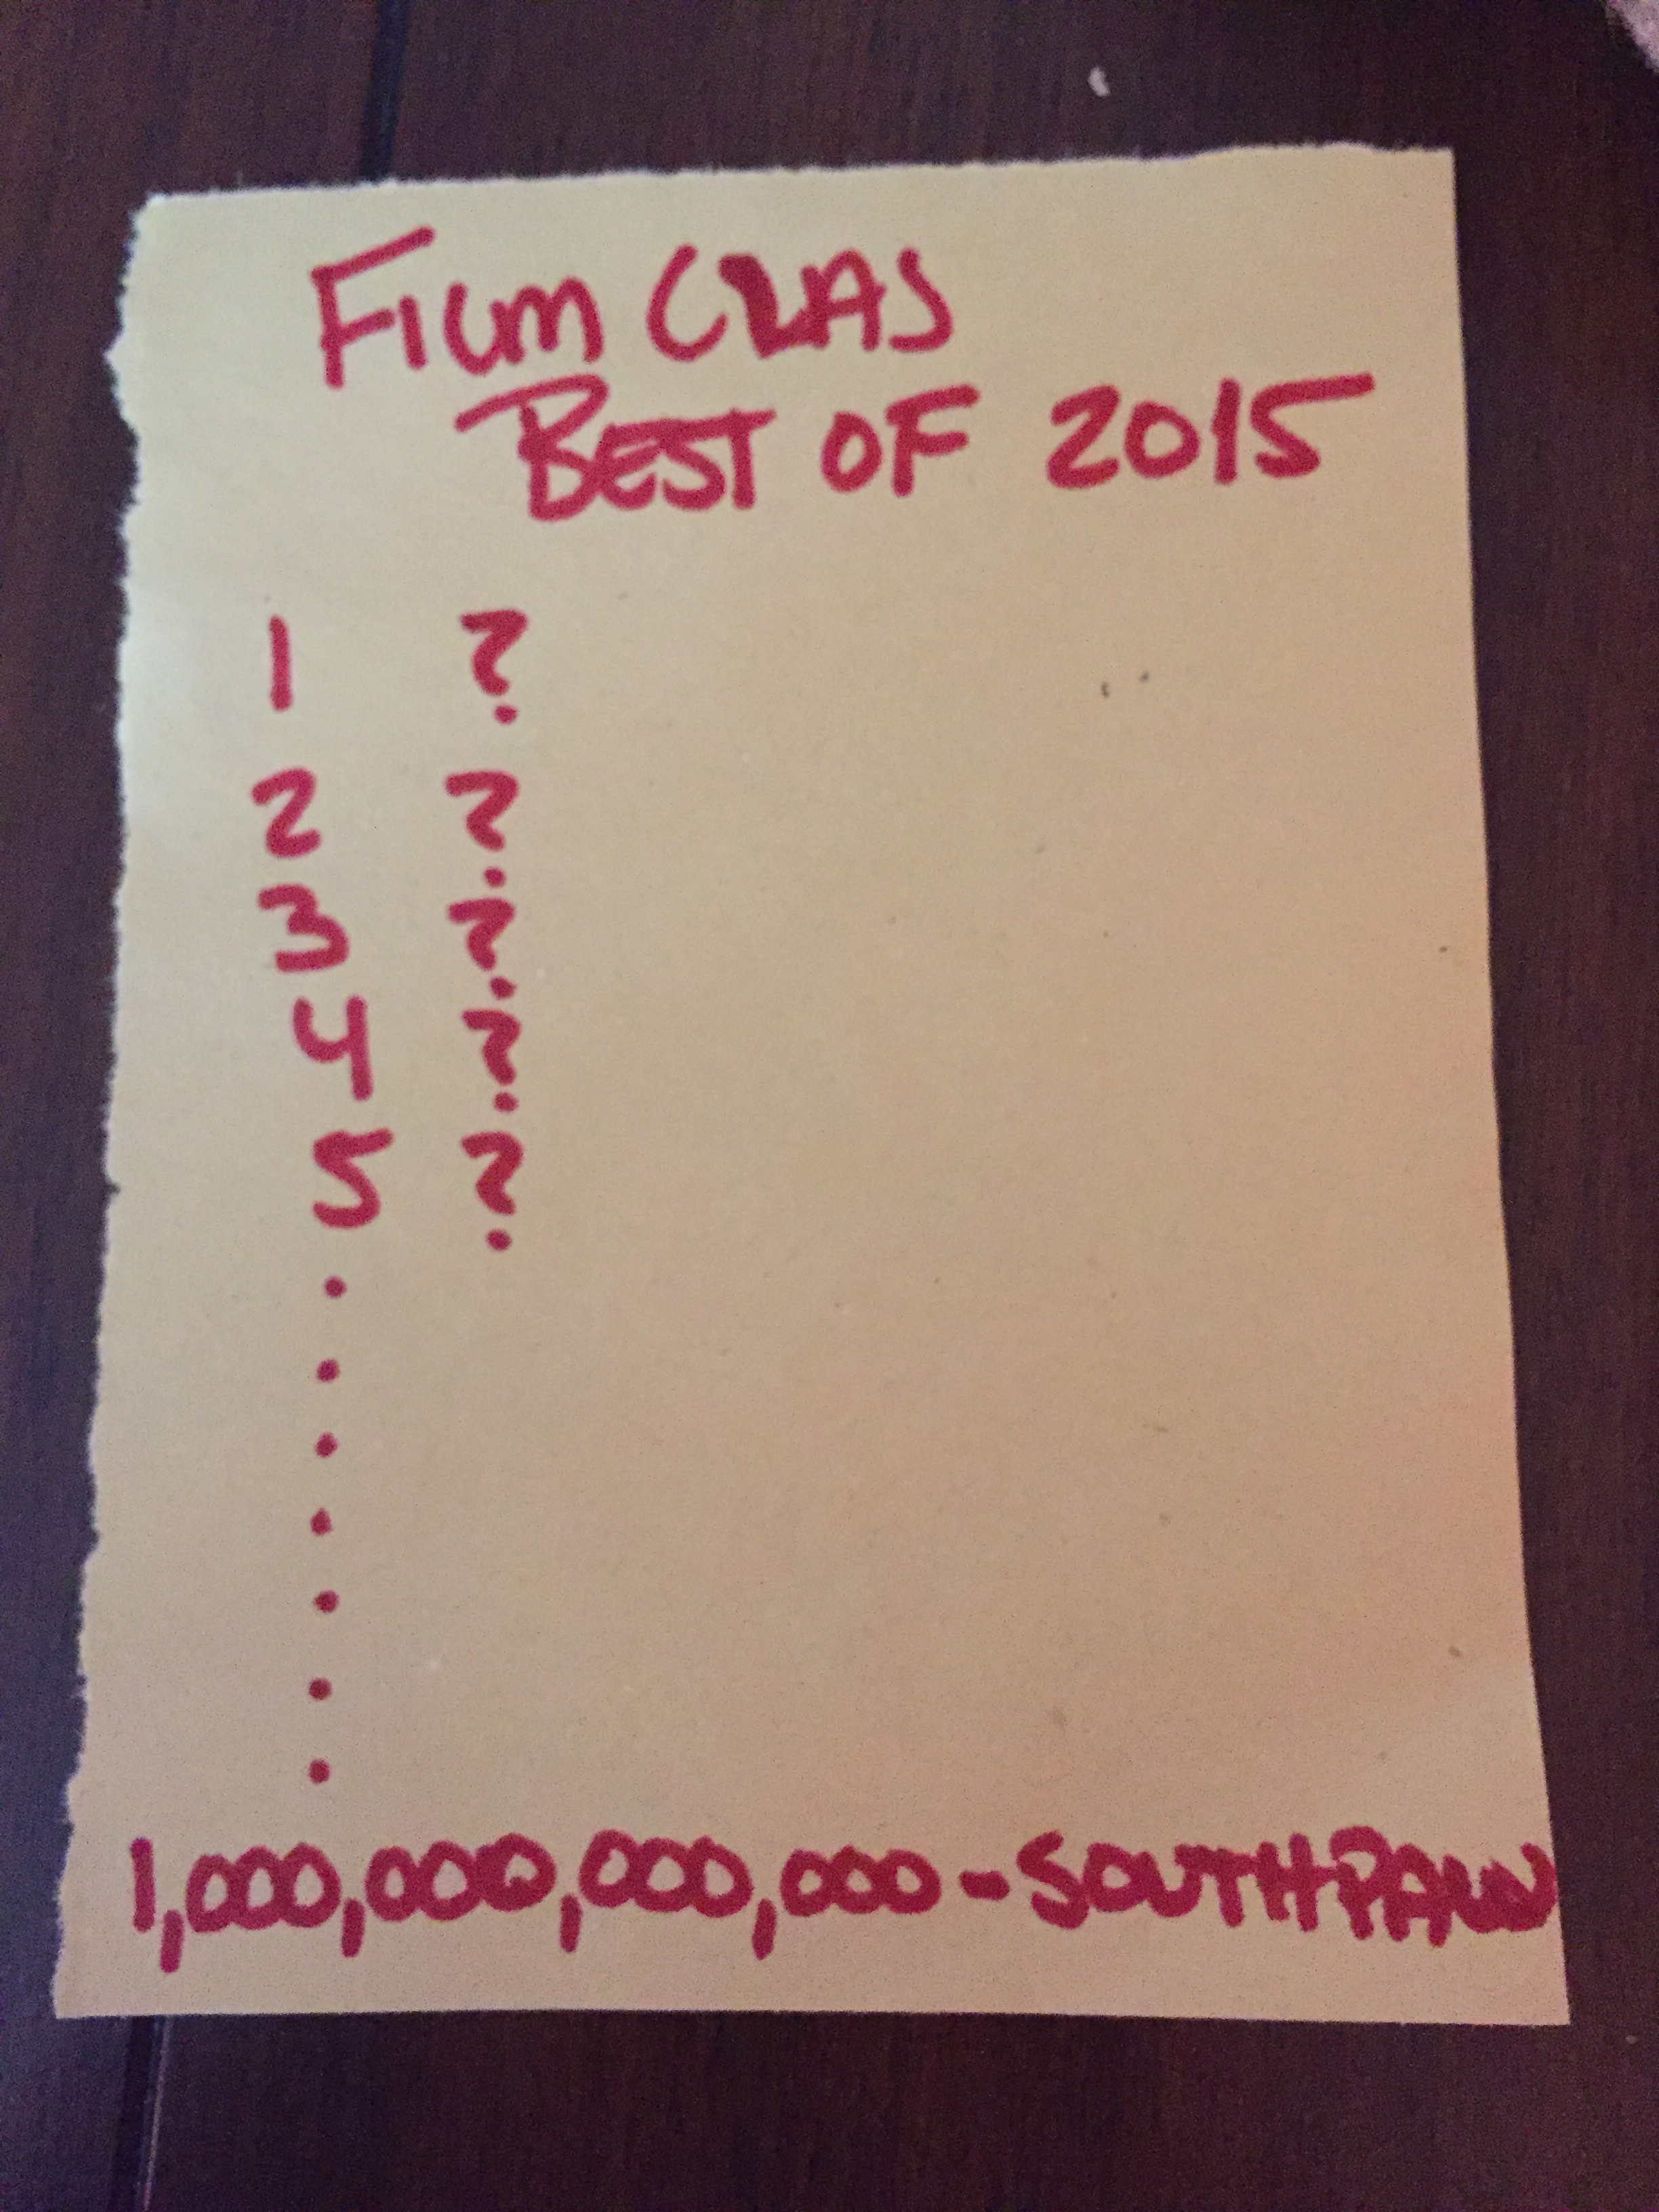 FILM CLAS
BEST OF 2015
1 ?
2 ?
3 ?
4 ?
5 ?
.
.
.
.
.
.
.
1,000,000,000,000 - SOUTHPAW